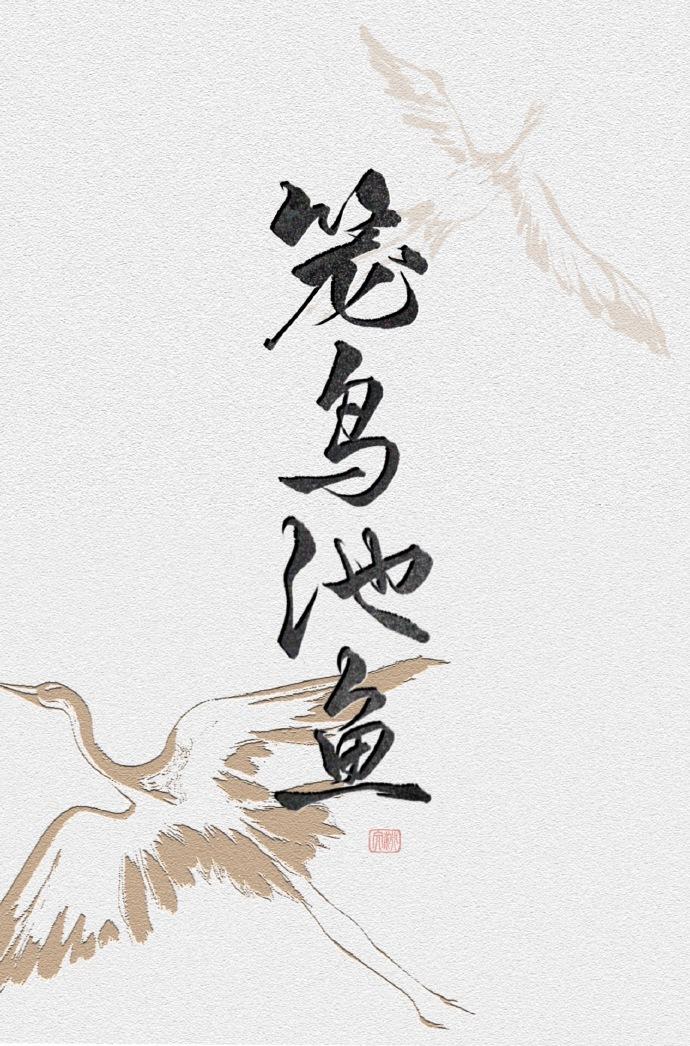 笼鸟池鱼